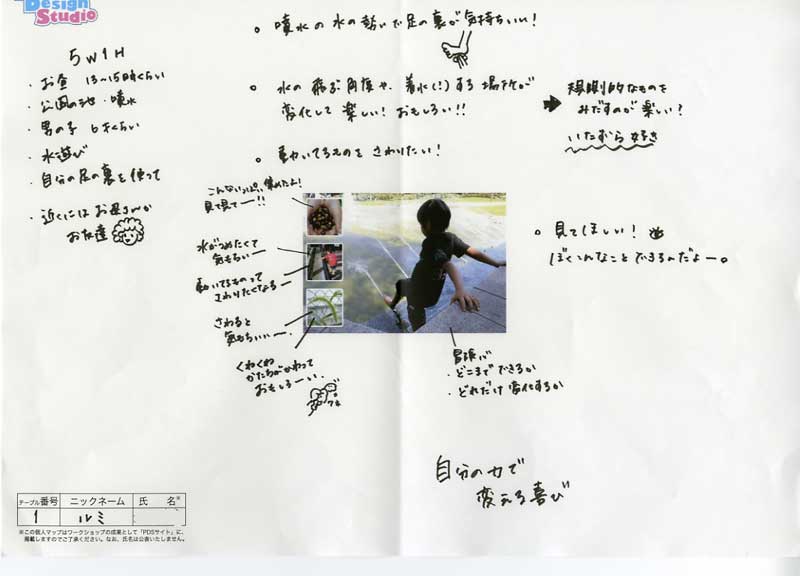 Design
Studio
5W1H
・お昼 13〜15時くらい
・公園の池・噴水
・男の子 6才くらい
・水遊び
・自分の足の裏を使って
・近くにはお母さんか
お友達
○ 噴水の水の勢いで足の裏が気持ちいい!
○ 水の飛ぶ角度や、着水(!)する場所が
変化して楽しい! おもしろい!!
➡ 規則的なものを
みだすのが楽しい?
いたずら好き
○ 動いてるものをさわりたい!
こんないっぱい集めたよ!
見て見てー!!
水がつめたくて
気もちいー
動いてるものって
さわりたくなる
さわると
気もちいいー
くねくね
かたちがかわって
おもしろーい.
○ 見てほしい!
ぼくこんなことできるんだよー。
冒険心
・どこまでできるか
・どれだけ変化するか
自分の力で
変える喜び
テーブル番号 ニックネーム 氏 名※
1 ルミ
※この個人マップはワークショップの成果として「PDSサイト」に、
掲載しますのでご了承ください。なお、氏名は公表いたしません。